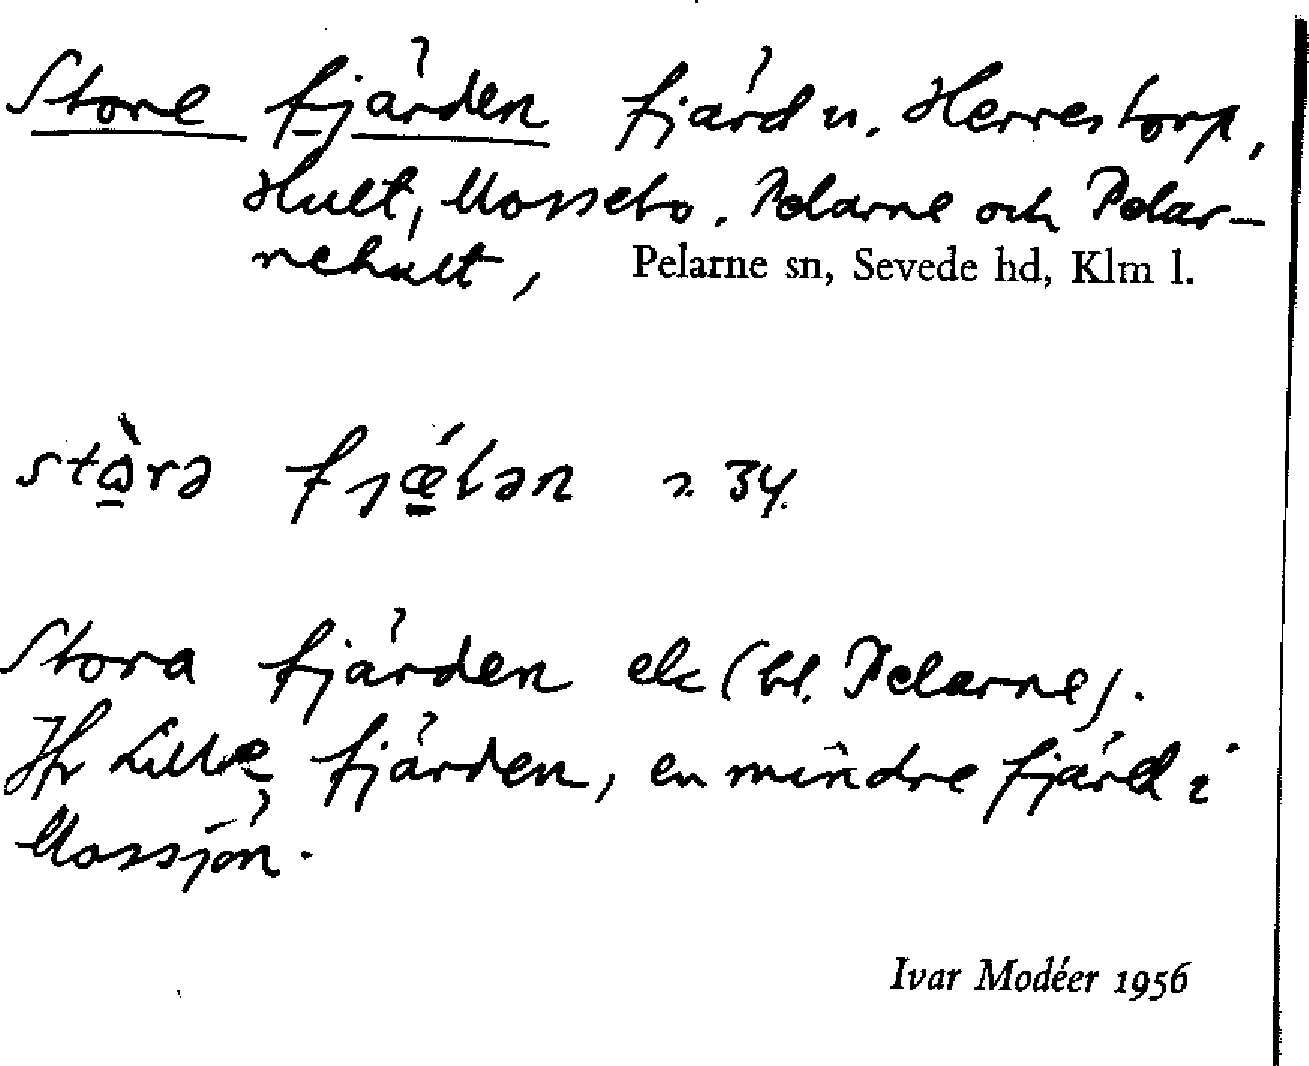 Store fjärden fjärd u. Herrestorp,
Hult, Mossebo, Pelarne och Pelar-
nehult, Pelarne sn, Sevede hd, Klm l.
stòrə fjǽlən 34.
Stora fjärden ek (bl. Pelarne).
Jfr Lille fjärden, en mindre fjärd i
Mossjön.
Ivar Modéer 1956